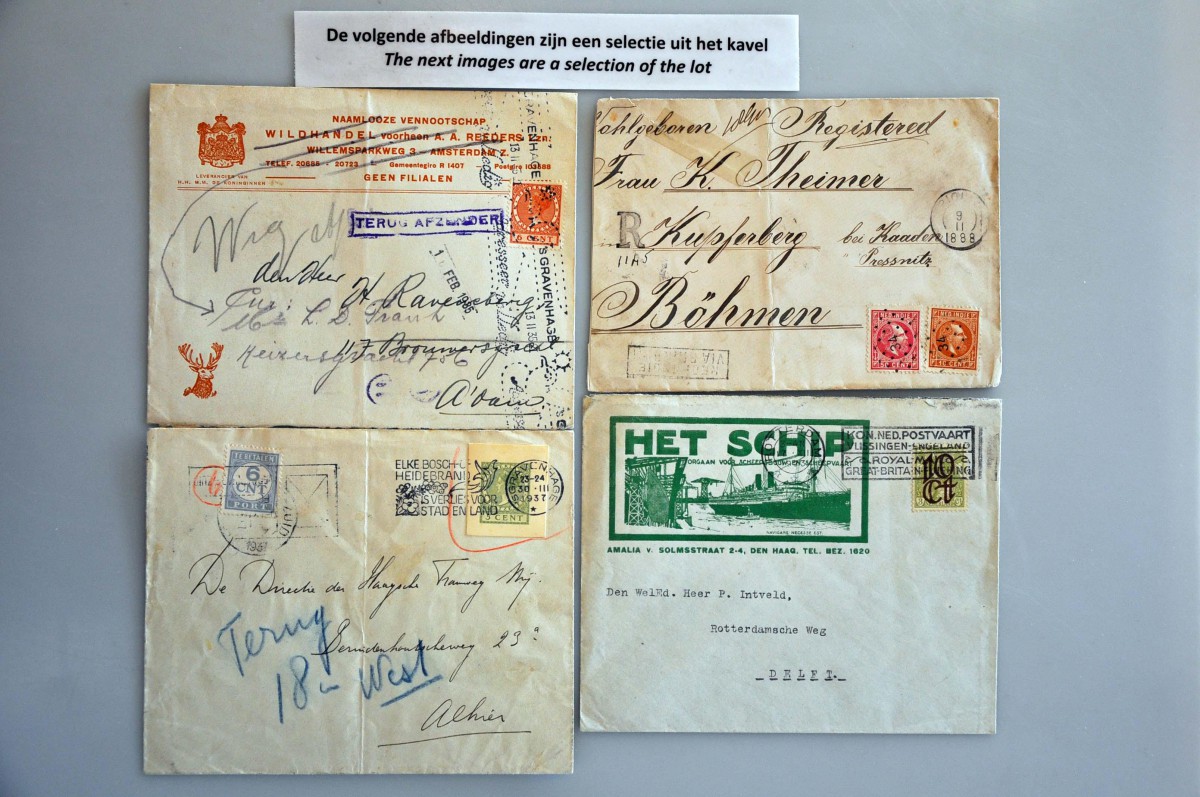 De volgende afbeeldingen zijn een selectie uit het kavel
The next images are a selection of the lot
NAAMLOOZE VENNOOTSCHAP
WILDHANDEL voorheen A. A. REEDERS
WILLEMSPARKWEG 3 - AMSTERDAM Z.
TELEF. 20686 - 20723 Gemeentegiro R 1407
GEEN FILIALEN
LEVERANCIER VAN
H.H. M.M. DE KONINGINNEN
'S GRAVENHAGE
13 II 35
CENT
TERUG AFZENDER
1 FEB. 1935
Weg
den Heer H. Ravensberg
L. D. Frank
Keizersgracht 756
117 Brouwersgracht
A'dam
Wohlgeboren Registered
Frau K. Theimer
R
Kupferberg bei Kaaden
Pressnitz
Böhmen
9
11
1888
NED. INDIE
NED. INDIE
TE BETALEN
6
CNT
PORT
1937
ELKE BOSCH- EN
HEIDEBRAND
IS VERLIES VOOR
STAD EN LAND
'S GRAVENHAGE
23-24
30 III
1937
3 CENT
De Directie der Haagsche Tramweg Mij.
23a
Terug
18 in West
Alhier
HET SCHIP
ORGAAN VOOR SCHEEPSBOUW EN SCHEEPVAART
AMALIA v. SOLMSSTRAAT 2-4, DEN HAAG. TEL. BEZ. 1620
KON. NED. POSTVAART
VLISSINGEN-ENGELAND
ROYAL MAIL
GREAT-BRITAIN
10
Ct
Den WelEd. Heer P. Intveld,
Rotterdamsche Weg
DELFT.